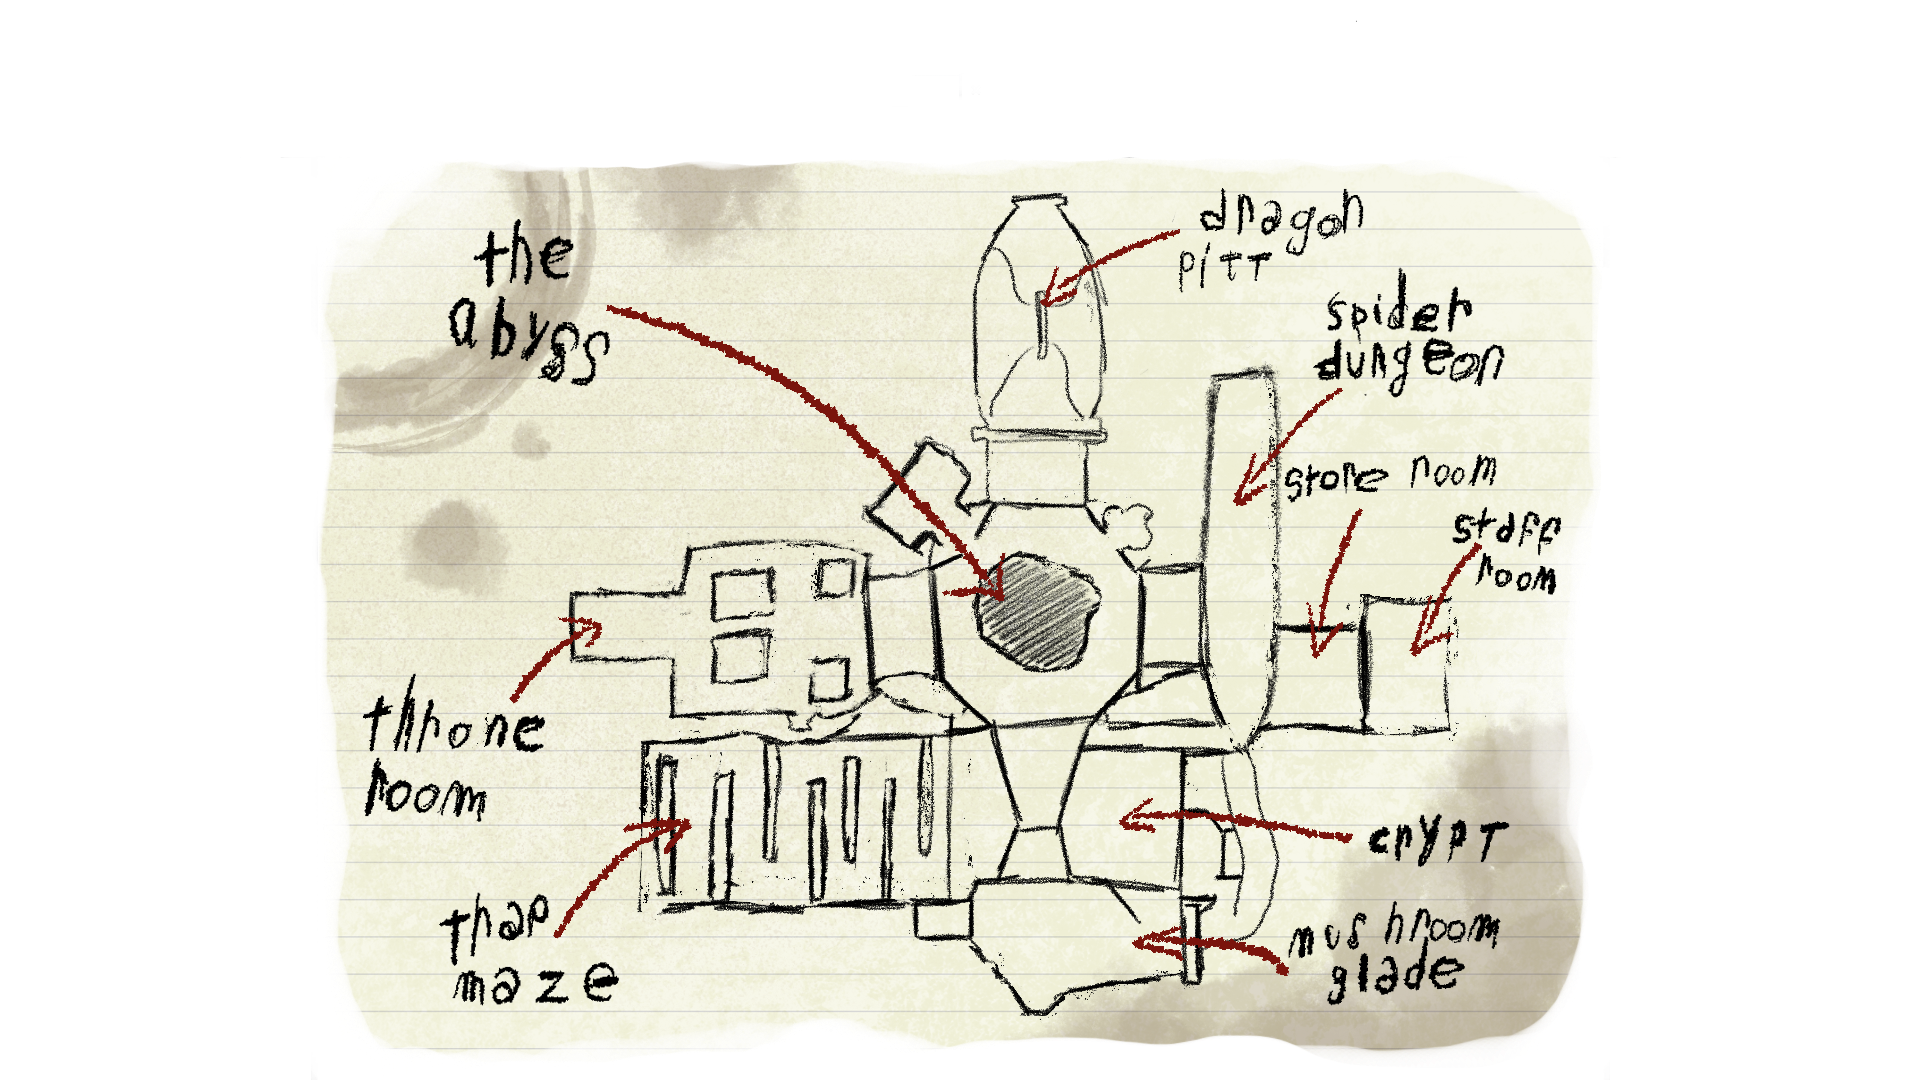 the
abyss
dragon
pitt
spider
dungeon
store room
staff
room
throne
room
trap
maze
crypt
mushroom
glade